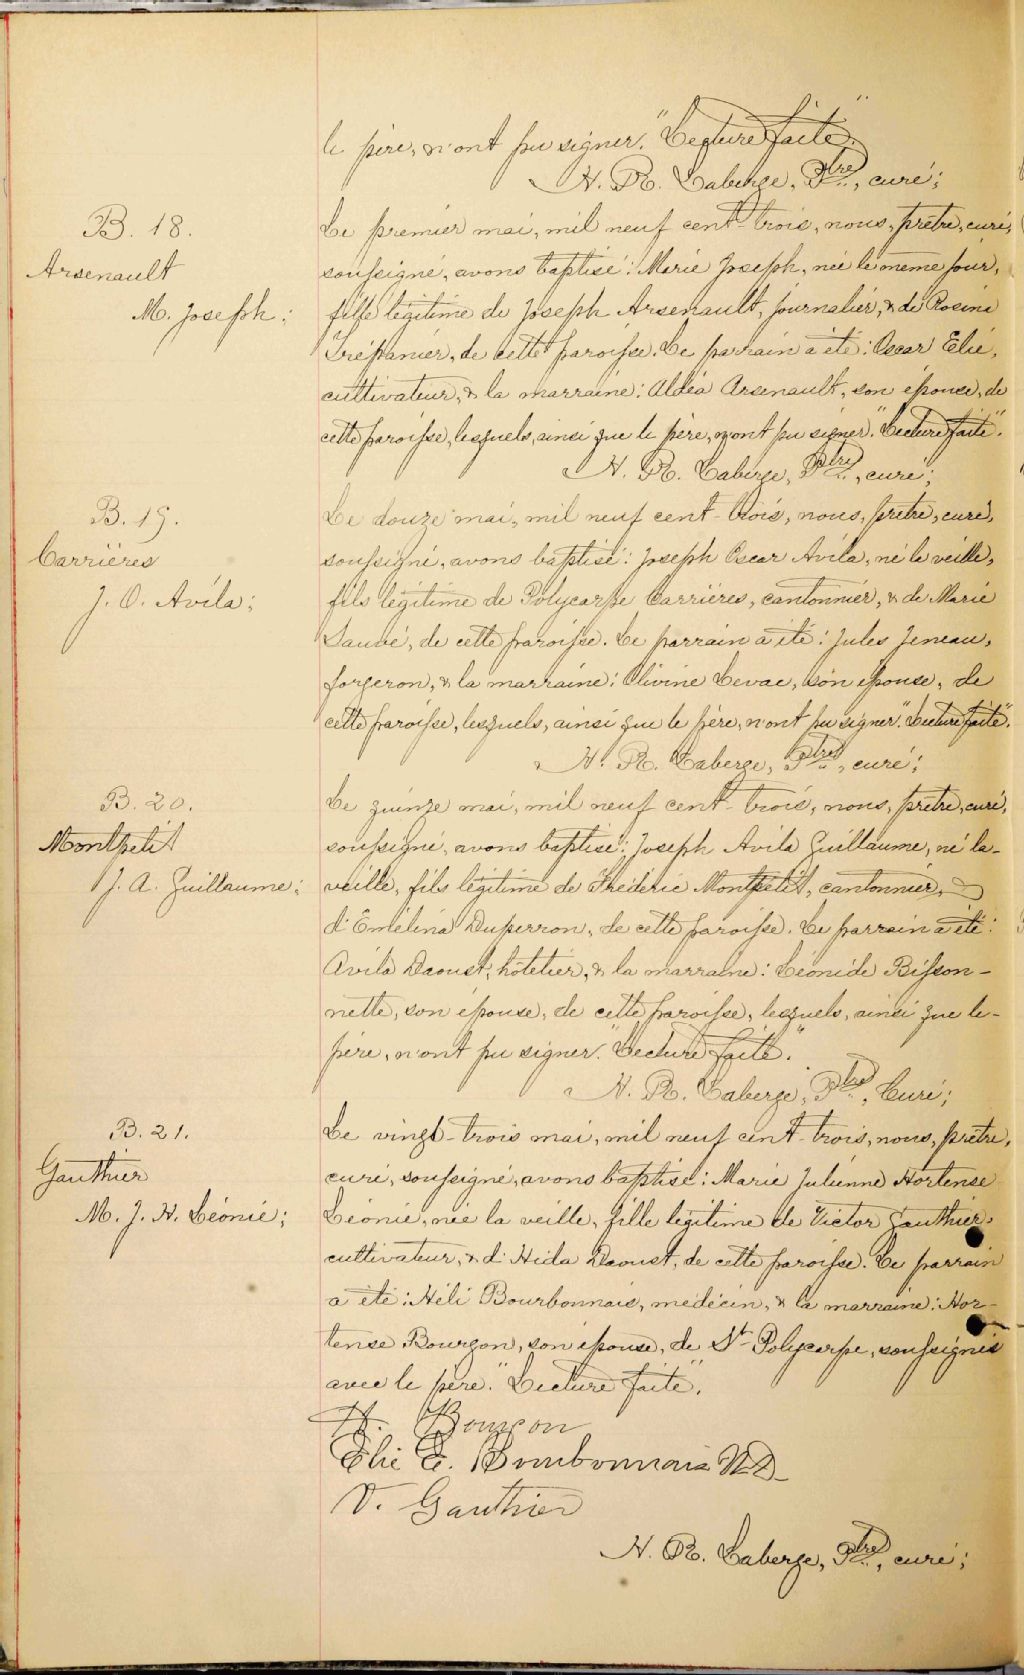 le père, n'ont pu signer. "Lecture faite".
N. R. Laberge, Ptre, curé;
B. 18.
Arsenault
M. Joseph:
Le premier mai, mil neuf cent-trois, nous, prêtre, curé,
soussigné, avons baptisé: Marie Joseph, née le même jour,
fille légitime de Joseph Arsenault, journalier, & de Rosina
Trépanier, de cette paroisse. Le parrain a été: Oscar Elie,
cultivateur, & la marraine: Aldéa Arsenault, son épouse, de
cette paroisse, lesquels, ainsi que le père, n'ont pu signer. "Lecture faite".
N. R. Laberge, Ptre, curé;
B. 19.
Carrières
J. O. Avila:
Le douze mai, mil neuf cent-trois, nous, prêtre, curé,
soussigné, avons baptisé: Joseph Oscar Avila, né la veille,
fils légitime de Polycarpe Carrières, cantonnier, & de Marie
Sauvé, de cette paroisse. Le parrain a été: Jules Jeneau,
forgeron, & la marraine: Olivine Levac, son épouse, de
cette paroisse, lesquels, ainsi que le père, n'ont pu signer. "Lecture faite".
N. R. Laberge, Ptre, curé;
B. 20.
Montpetit
J. A. Guillaume:
Le quinze mai, mil neuf cent-trois, nous, prêtre, curé,
soussigné, avons baptisé: Joseph Avila Guillaume, né la-
veille, fils légitime de Fréderic Montpetit, cantonnier, &
d'Emélina Duperron, de cette paroisse. Le parrain a été:
Avila Daoust, hôtelier, & la marraine: Léonide Bisson-
nette, son épouse, de cette paroisse, lesquels, ainsi que le-
père, n'ont pu signer. "Lecture faite."
N. R. Laberge, Ptre, Curé;
B. 21.
Gauthier
M. J. H. Léonie;
Le vingt-trois mai, mil neuf cent-trois, nous, prêtre,
curé, soussigné, avons baptisé: Marie Julienne Hortense
Léonie, née la veille, fille légitime de Victor Gauthier,
cultivateur, & d'Hida Daoust, de cette paroisse. Le parrain
a été: Héli Bourbonnais, médecin, & la marraine: Hor-
tense Bourgon, son épouse, de St-Polycarpe, soussignés
avec le père. "Lecture faite".
H. Bourgon
Elie E. Bourbonnais M.D.
V. Gauthier
N. R. Laberge, Ptre, curé;